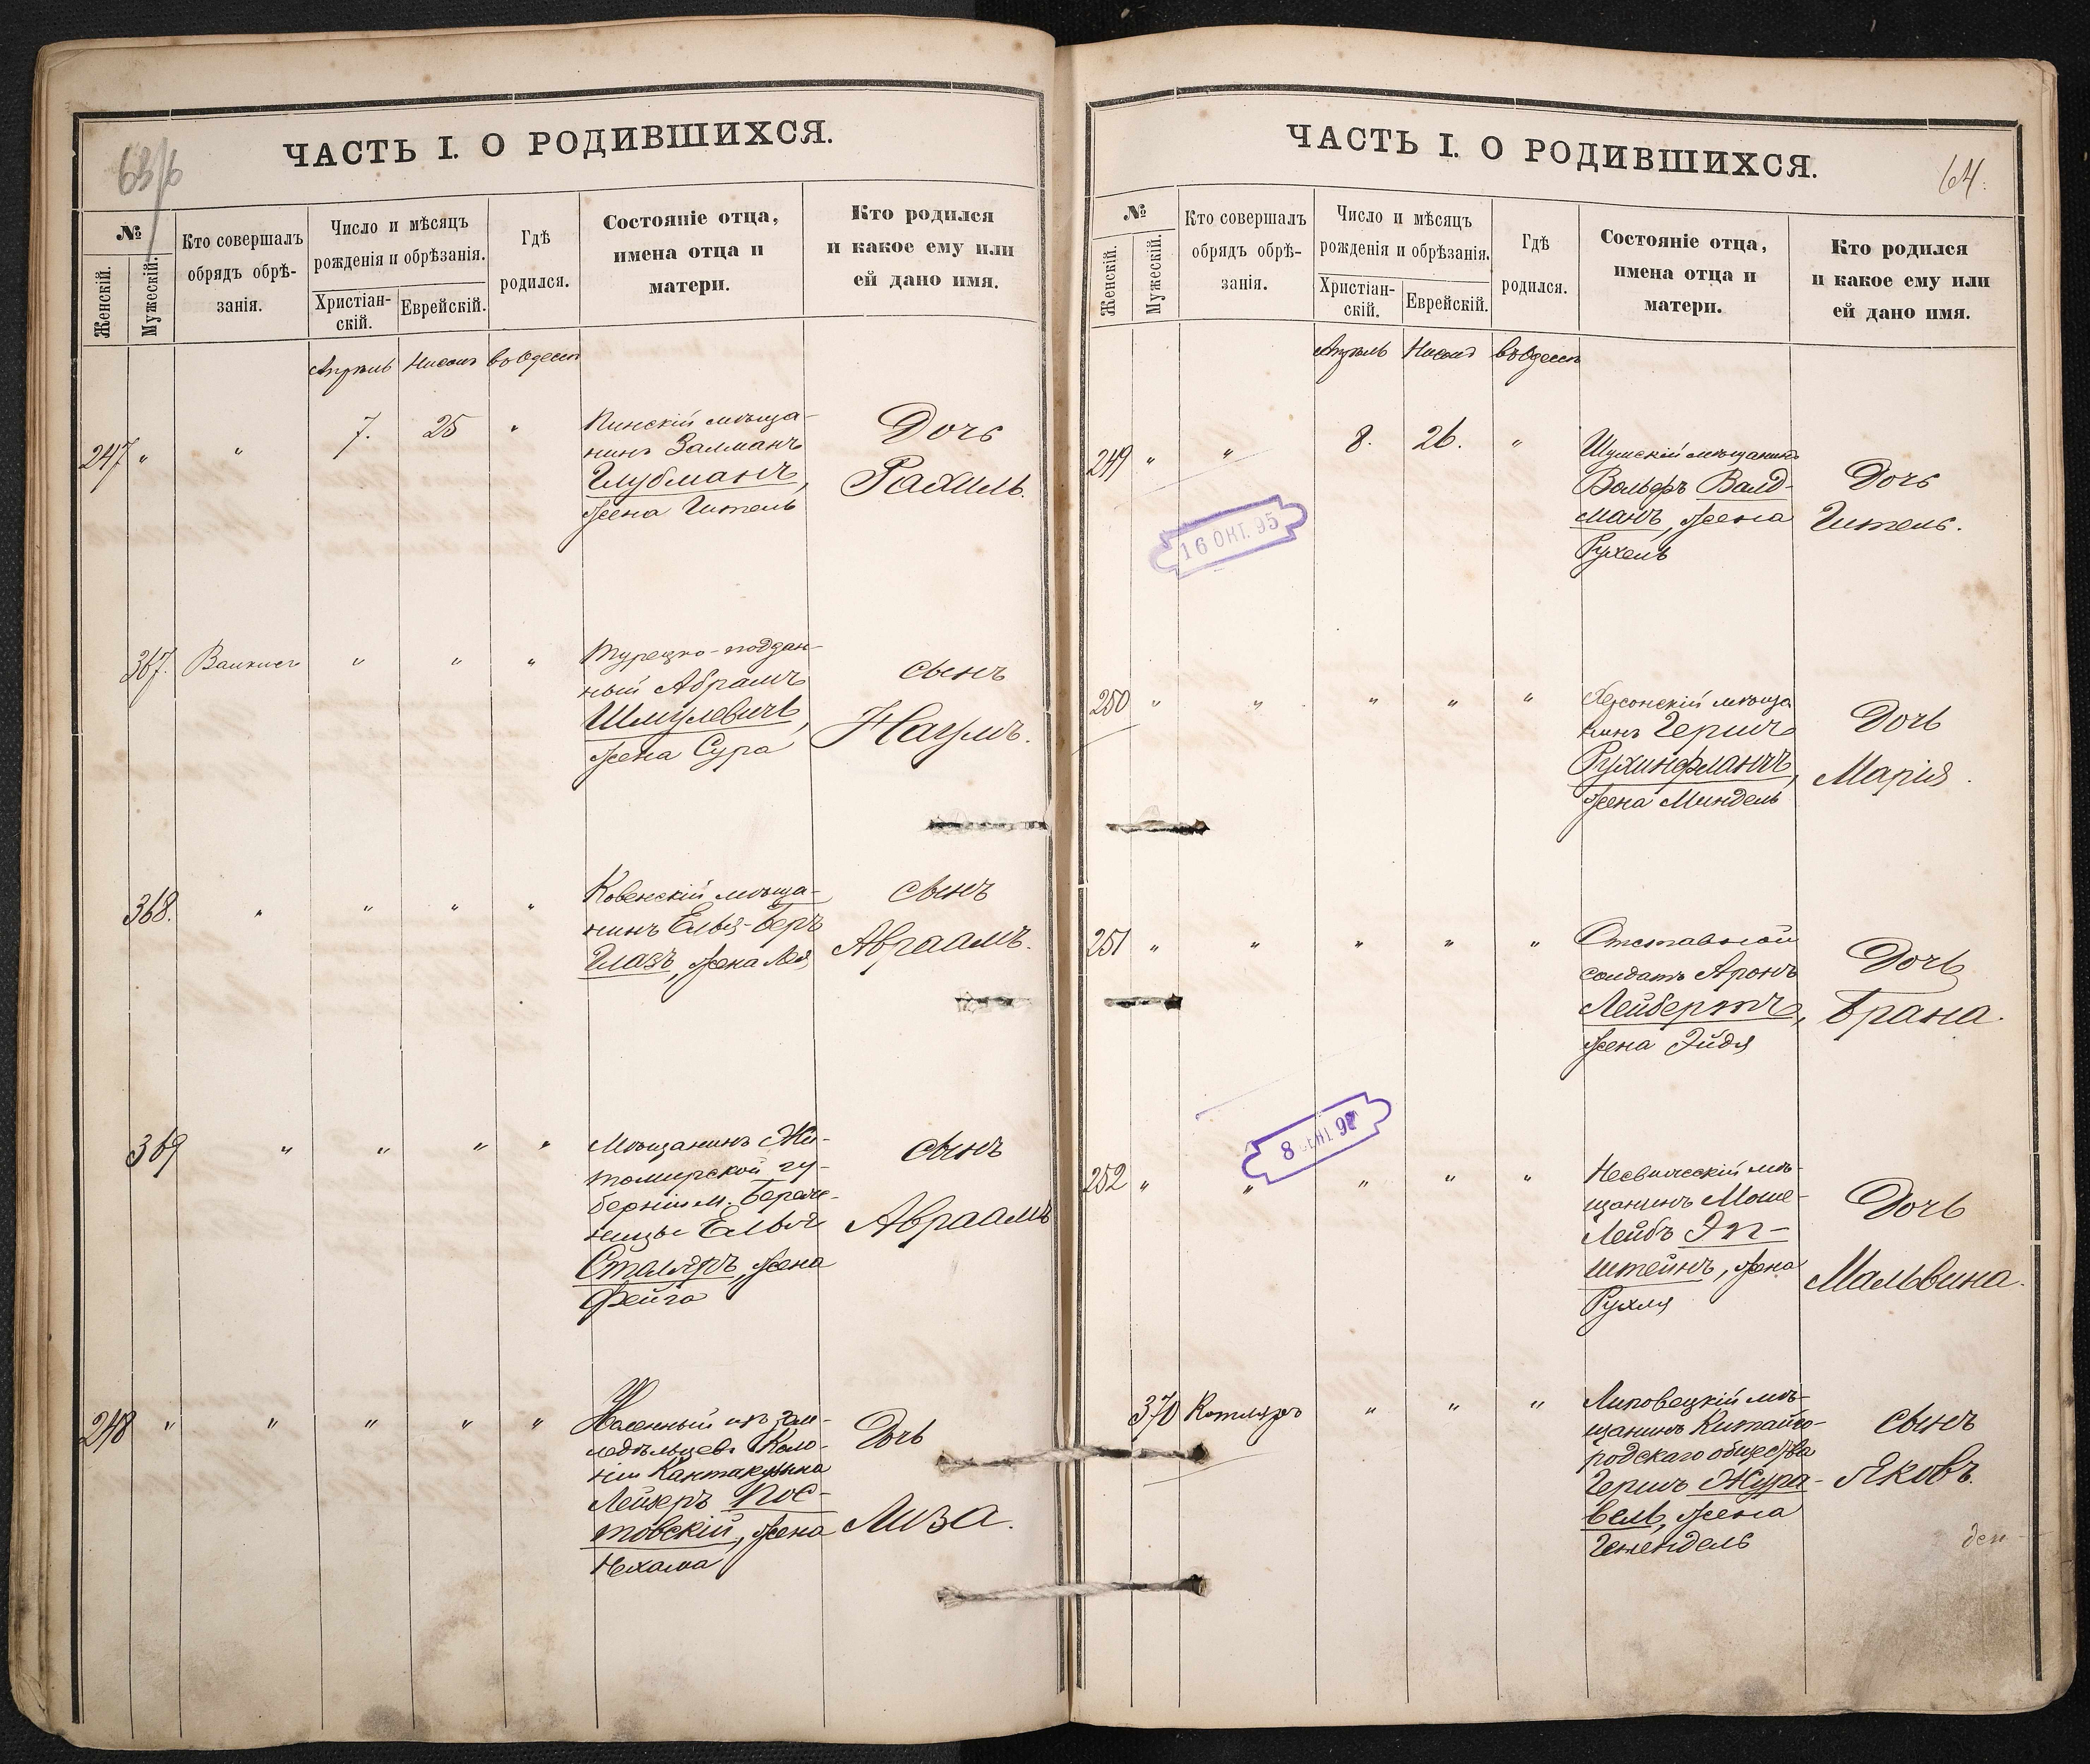 63/б
ЧАСТЬ I. О РОДИВШИХСЯ.
№
Женскій.
Мужескій.
Кто совершалъ
обрядъ обрѣ-
занія.
Число и мѣсяцъ
рожденія и обрѣзанія.
Христіан-
скій.
Еврейскій.
Гдѣ
родился.
Состояніе отца,
имена отца и
матери.
Кто родился
и какое ему или
ей дано имя.
Апрѣль Нисонъ въ Одессѣ
247 " " 7. 25 "
Пинскій мѣща-
нинъ Залманъ
Глубманъ,
жена Гитель
Дочь
Рахиль.
367. " " "
Турецко-поддан-
ный Абрамъ
Шмулевичъ,
жена Сура
сынъ
Наумъ.
368. " " " "
Ковенскій мѣща-
нинъ Елья-Беръ
Глазъ, жена Лея
сынъ
Авраамъ.
369 " " " "
Мѣщанинъ Жи-
томирской гу-
берніи м.
Ельи
Столяръ, жена
Фейга
сынъ
Авраамъ
248 " " " " "
изъ зем-
ледѣльцевъ Коло-
ніи Кантакузинка
Лейзеръ Пос-
товскій, жена
Нехама
Дочь
Лиза.
64.
ЧАСТЬ I. О РОДИВШИХСЯ.
№
Женскій.
Мужескій.
Кто совершалъ
обрядъ обрѣ-
занія.
Число и мѣсяцъ
рожденія и обрѣзанія.
Христіан-
скій.
Еврейскій.
Гдѣ
родился.
Состояніе отца,
имена отца и
матери.
Кто родился
и какое ему или
ей дано имя.
Апрѣль Нисонъ въ Одессѣ
249 " " 8. 26. "
Шумскій мѣщанинъ
Вольфъ Валд-
манъ, жена
Рухель
Дочь
Гитель.
16 ОКТ. 95
250 " " " " "
Херсонскій мѣща
нинъ Гершъ
Рухинфманъ,
жена Миндель
Дочь
Марія.
251 " " " " "
Отставной
солдатъ Аронъ
Лейбертъ,
жена Эйдя
Дочь
Брана.
8 СЕНТ 97
252 " " " " "
Несвижскій мѣ-
щанинъ Моше-
Лейбъ Эп-
штейнъ, жена
Рухля
Дочь
Мальвина.
370 Котляръ " " "
Липовецкій мѣ-
щанинъ Китайго-
родскаго общества
Гершъ Жура-
вель, жена
Генендель
сынъ
Яковъ.